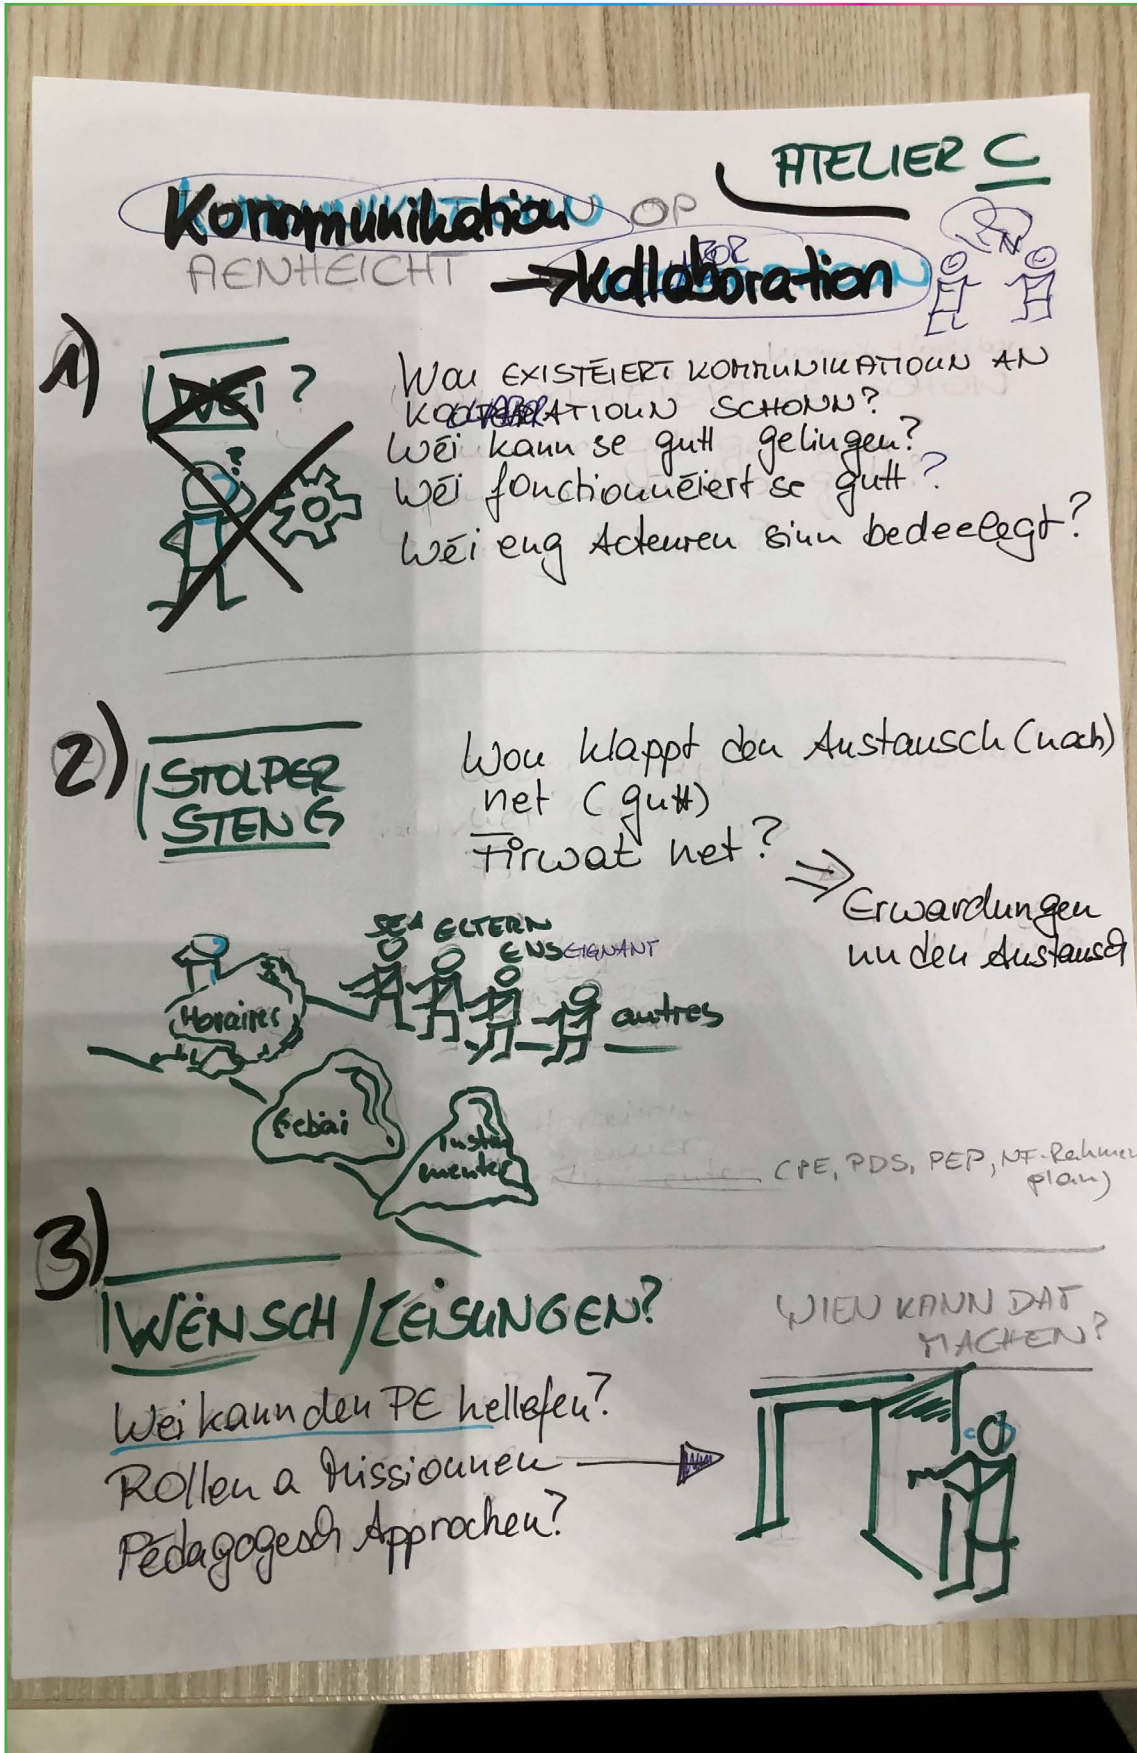 ATELIER C
Kommunikation OP
AENHEICHT → Kollaboration
1)
WEI ?
?
Wou EXISTÉIERT KOMMUNIKATIOUN AN
SCHONN?
Wéi kann se gutt gelingen?
Wéi fonctionnéiert se gutt ?
Wéi eng Acteuren sinn bedeelegt?
2)
STOLPER
STENG
Wou klappt den Austausch (noch)
net (gutt)
Firwat net?
⇒ Erwardungen
un den Austausch
SEA ELTERN
ENSEIGNANT
autres
Horaires
Gebai
Instru
menter
CPE, PDS, PEP, NF-Rahmen
plan)
3)
WËNSCH/LÉISUNGEN?
WIEN KANN DAT
MACHEN?
Wei kann den PE hellefen?
Rollen a Missiounen
Pédagogesch Approchen?